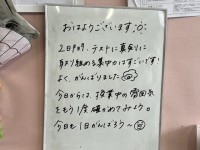 おはようございます
2日間、テストに真剣に
取り組める集中力はすごいです!
よく、がんばりました
今日からは、授業中の雰囲気
をもう1度確かめてみよう。
今日も1日がんばろう〜